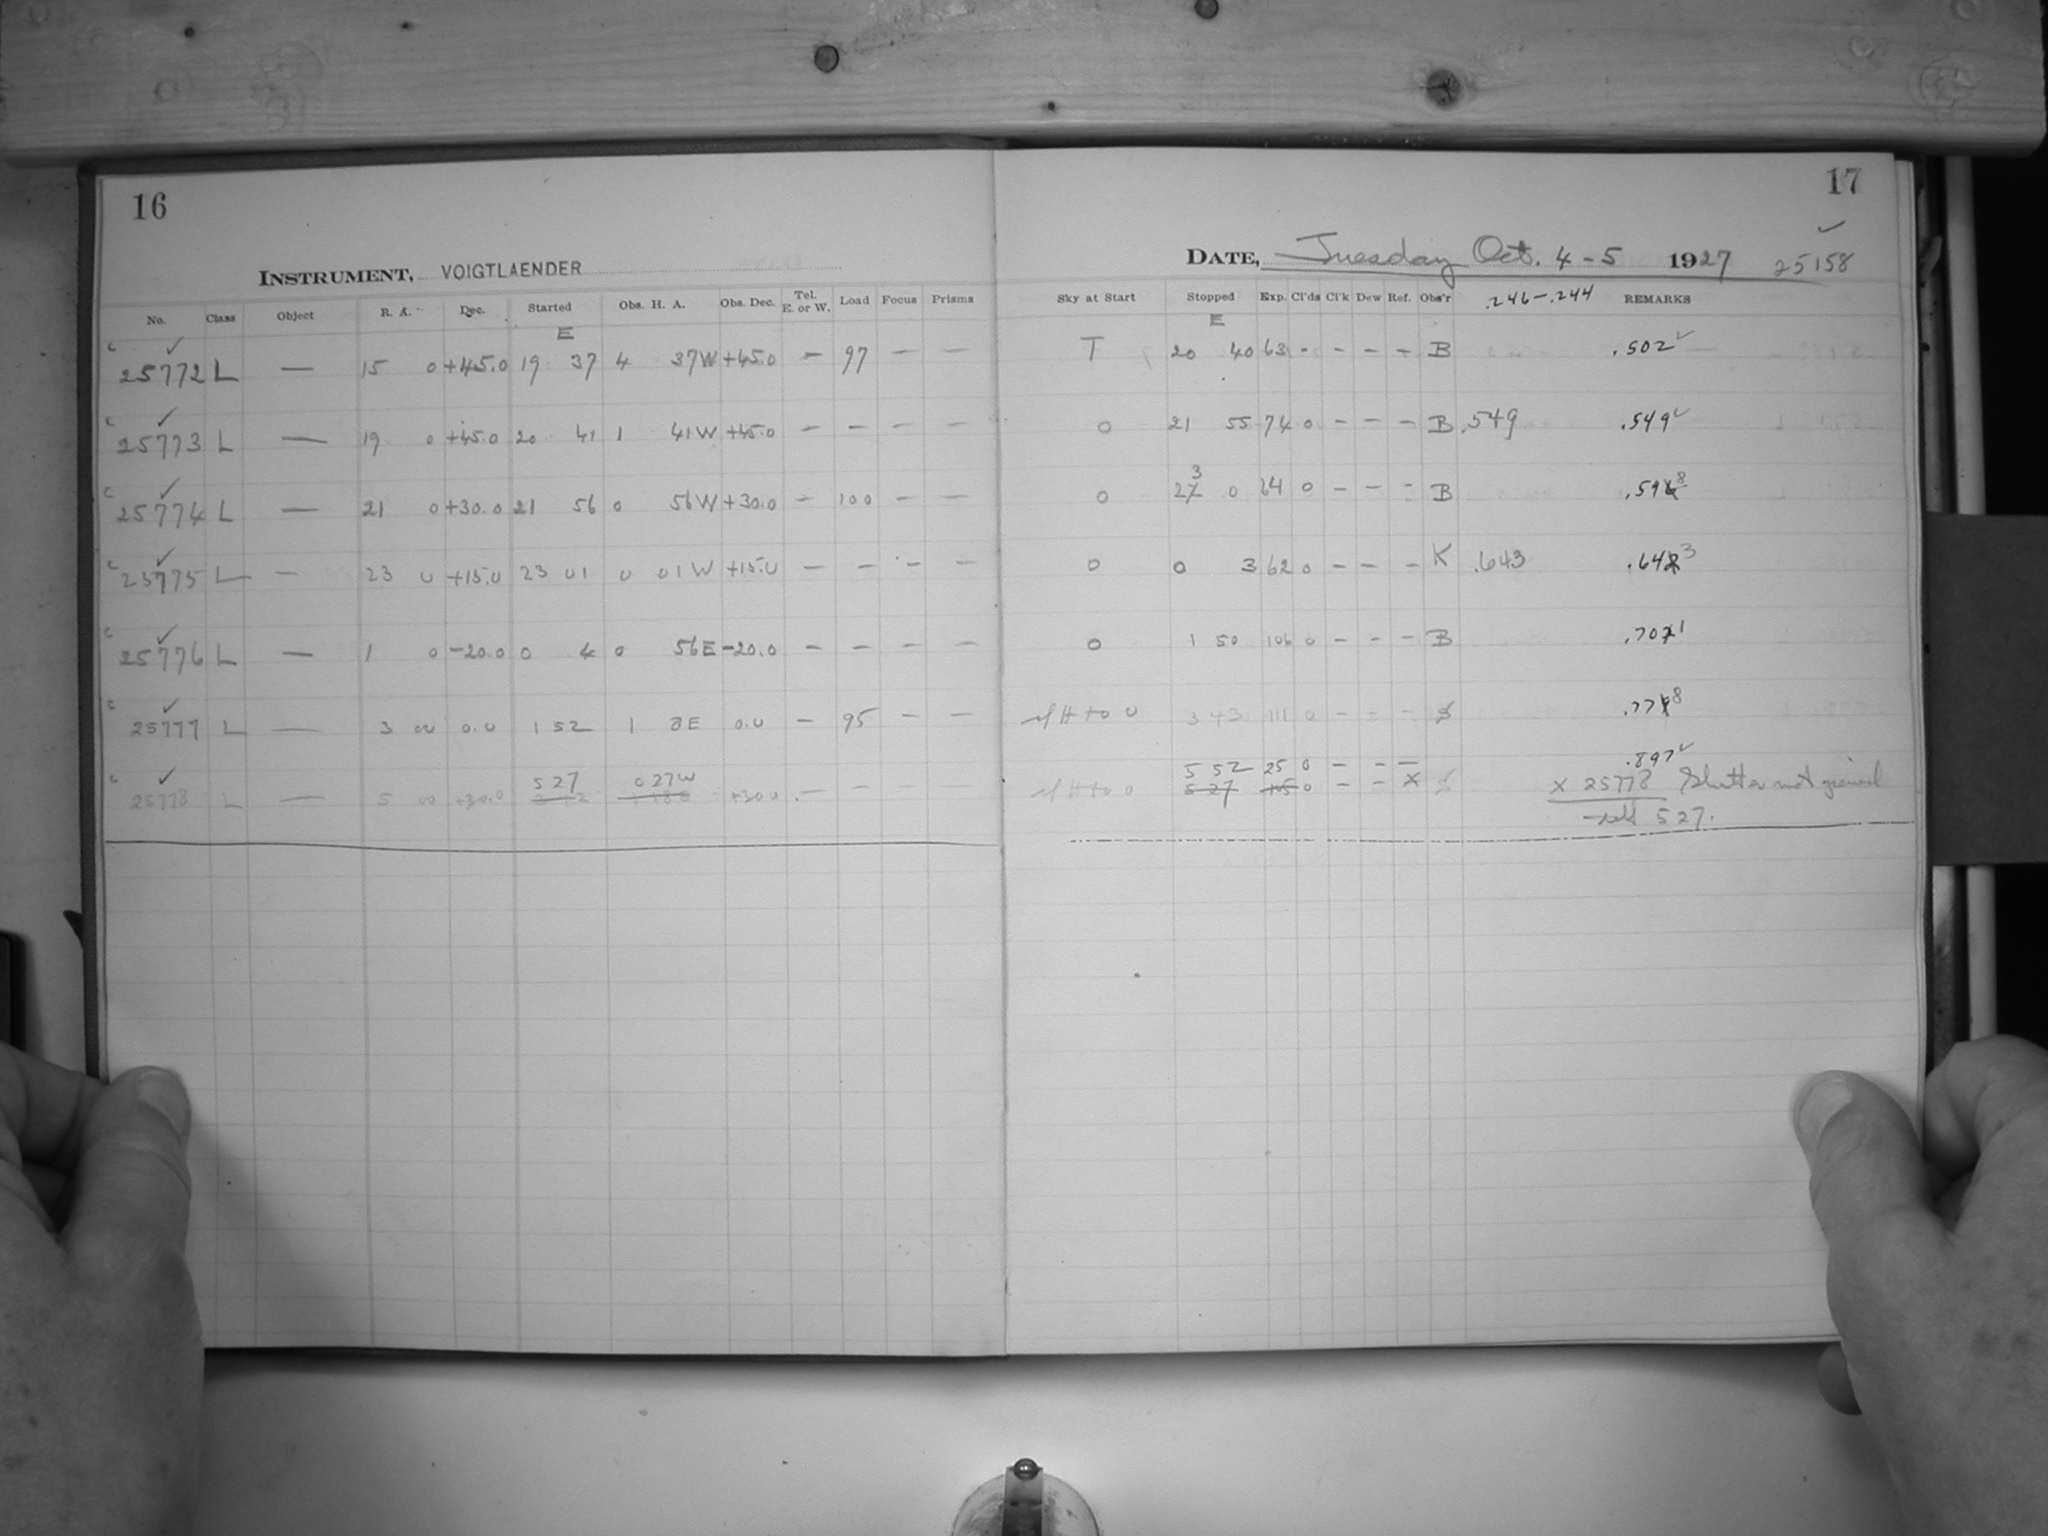 16
INSTRUMENT, VOIGTLAENDER
No. Class Object R. A. Dec. Started Obs. H. A. Obs. Dec. Tel. E. or W. Load Focus Prisms
E
c 25772 L — 15 0 +45.0 19 37 4 37W +45.0 — 97 — —
c 25773 L — 19 0 +45.0 20 41 1 41W +45.0 — — — —
c 25774 L — 21 0 +30.0 21 56 0 56W +30.0 — 100 — —
c 25775 L — 23 0 +15.0 23 01 0 01W +15.0 — — — —
c 25776 L — 1 0 -20.0 0 4 0 56E -20.0 — — — —
c 25777 L — 3 00 0.0 1 52 1 8E 0.0 — 95 — —
5 27 0 27W
c 25778 L — 5 00 +30.0 +30.0 — — — —
17
DATE, Tuesday Oct. 4-5 1927 25158
Sky at Start Stopped Exp. Cl'ds Cl'k Dew Ref. Obs'r .246-.244 REMARKS
E
T 20 40 63 - - - - B .502
0 21 55 74 0 - - - B .549 .549
0 23 0 64 0 - - - B .598
0 0 3 62 0 - - - K .643 .643
0 1 50 106 0 - - - B .701
H to 0 3 43 111 0 - - - .778
5 52 25 0 - - — .897
H to 0 5 27 105 0 - - X X 25778 Shutter not
527.